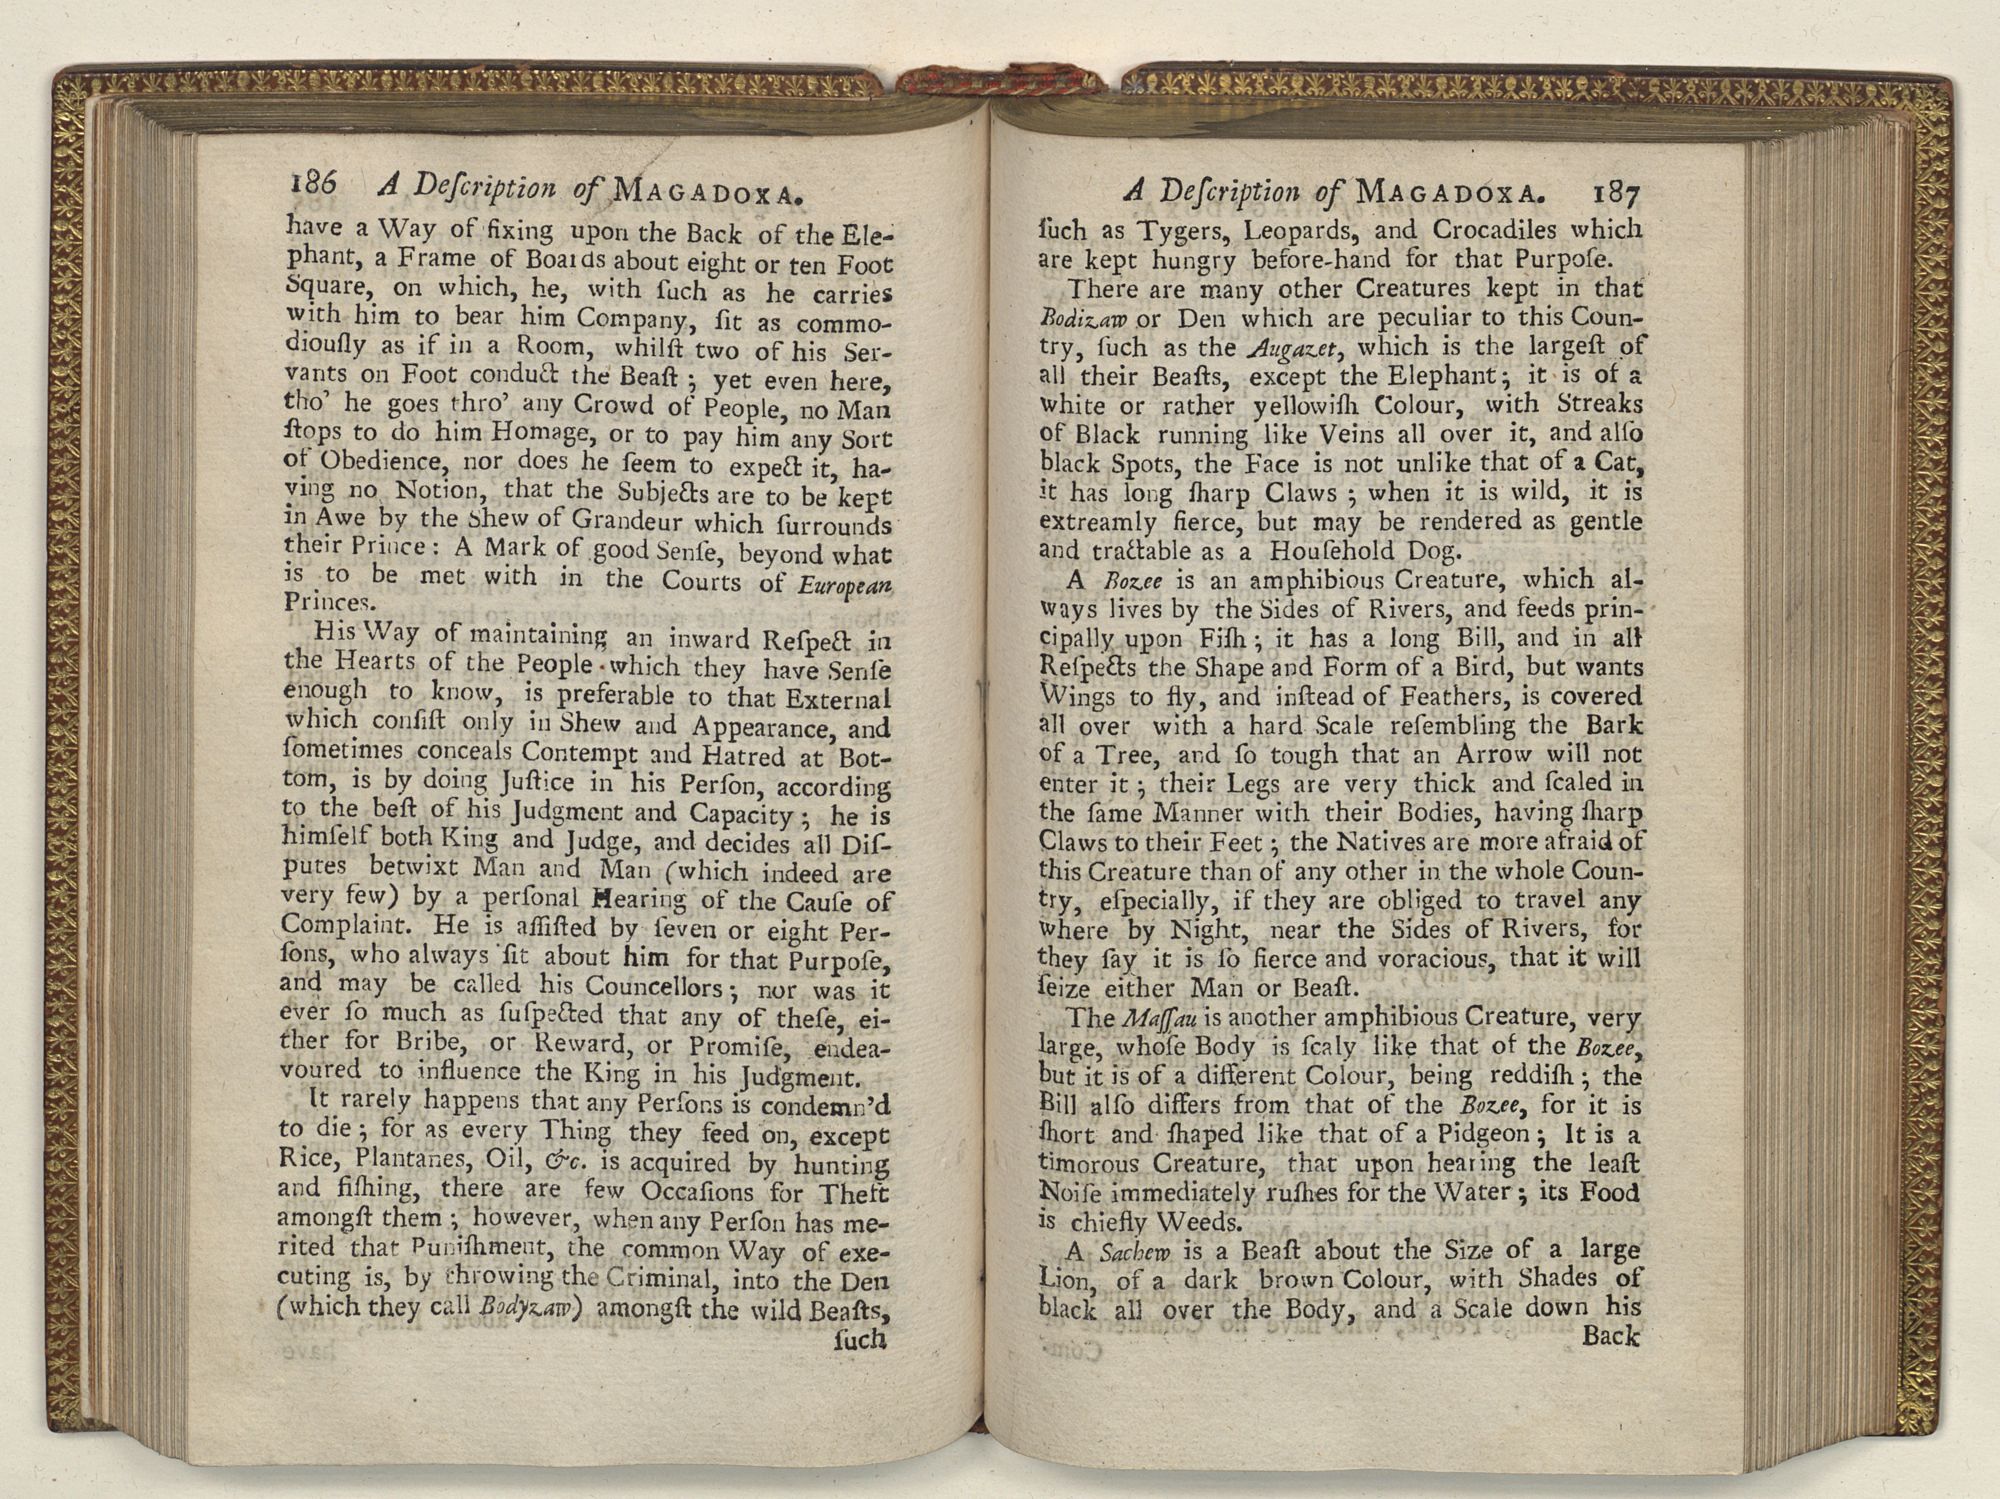 186 A Deſcription of MAGADOXA.
have a Way of fixing upon the Back of the Ele-
phant, a Frame of Boards about eight or ten Foot
Square, on which, he, with ſuch as he carries
with him to bear him Company, ſit as commo-
diouſly as if in a Room, whilſt two of his Ser-
vants on Foot conduct the Beaſt; yet even here,
tho' he goes thro' any Crowd of People, no Man
ſtops to do him Homage, or to pay him any Sort
of Obedience, nor does he ſeem to expect it, ha-
ving no Notion, that the Subjects are to be kept
in Awe by the Shew of Grandeur which ſurrounds
their Prince: A Mark of good Senſe, beyond what
is to be met with in the Courts of European
Princes.
His Way of maintaining an inward Reſpect in
the Hearts of the People which they have Senſe
enough to know, is preferable to that External
which conſiſt only in Shew and Appearance, and
ſometimes conceals Contempt and Hatred at Bot-
tom, is by doing Juſtice in his Perſon, according
to the beſt of his Judgment and Capacity; he is
himſelf both King and Judge, and decides all Diſ-
putes betwixt Man and Man (which indeed are
very few) by a perſonal Hearing of the Cauſe of
Complaint. He is aſſiſted by ſeven or eight Per-
ſons, who always ſit about him for that Purpoſe,
and may be called his Councellors; nor was it
ever ſo much as ſuſpected that any of theſe, ei-
ther for Bribe, or Reward, or Promiſe, endea-
voured to influence the King in his Judgment.
It rarely happens that any Perſons is condemn'd
to die; for as every Thing they feed on, except
Rice, Plantanes, Oil, &c. is acquired by hunting
and fiſhing, there are few Occaſions for Theft
amongſt them; however, when any Perſon has me-
rited that Puniſhment, the common Way of exe-
cuting is, by throwing the Criminal, into the Den
(which they call Bodyzaw) amongſt the wild Beaſts,
ſuch
A Deſcription of MAGADOXA. 187
ſuch as Tygers, Leopards, and Crocadiles which
are kept hungry before-hand for that Purpoſe.
There are many other Creatures kept in that
Bodizaw or Den which are peculiar to this Coun-
try, ſuch as the Augazet, which is the largeſt of
all their Beaſts, except the Elephant; it is of a
white or rather yellowiſh Colour, with Streaks
of Black running like Veins all over it, and alſo
black Spots, the Face is not unlike that of a Cat,
it has long ſharp Claws; when it is wild, it is
extreamly fierce, but may be rendered as gentle
and tractable as a Houſehold Dog.
A Bozee is an amphibious Creature, which al-
ways lives by the Sides of Rivers, and feeds prin-
cipally upon Fiſh; it has a long Bill, and in all
Reſpects the Shape and Form of a Bird, but wants
Wings to fly, and inſtead of Feathers, is covered
all over with a hard Scale reſembling the Bark
of a Tree, and ſo tough that an Arrow will not
enter it; their Legs are very thick and ſcaled in
the ſame Manner with their Bodies, having ſharp
Claws to their Feet; the Natives are more afraid of
this Creature than of any other in the whole Coun-
try, eſpecially, if they are obliged to travel any
where by Night, near the Sides of Rivers, for
they ſay it is ſo fierce and voracious, that it will
ſeize either Man or Beaſt.
The Maſſau is another amphibious Creature, very
large, whoſe Body is ſcaly like that of the Bozee,
but it is of a different Colour, being reddiſh; the
Bill alſo differs from that of the Bozee, for it is
ſhort and ſhaped like that of a Pidgeon; It is a
timorous Creature, that upon hearing the leaſt
Noiſe immediately ruſhes for the Water; its Food
is chiefly Weeds.
A Sachew is a Beaſt about the Size of a large
Lion, of a dark brown Colour, with Shades of
black all over the Body, and a Scale down his
Back